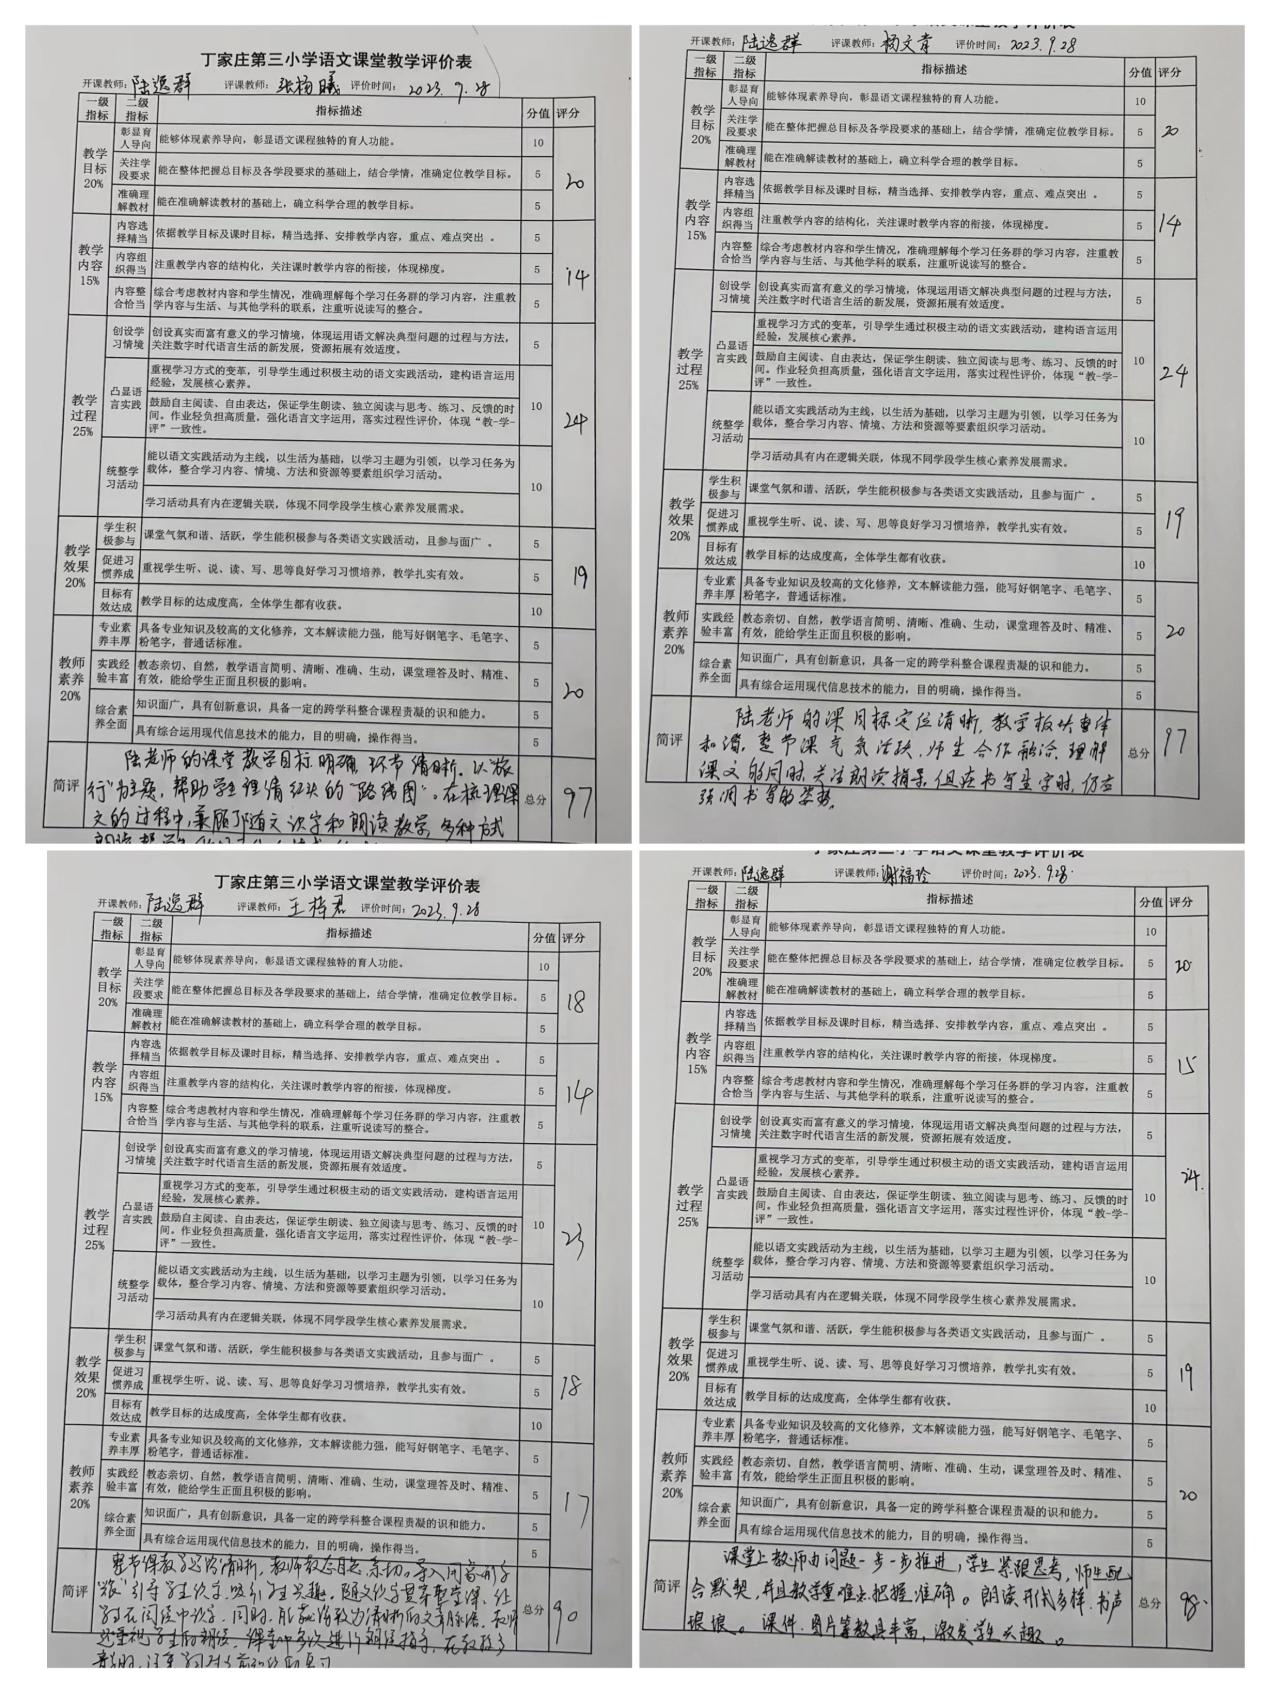 丁家庄第三小学语文课堂教学评价表
开课教师：陆逸群 评课教师：张杨曦 评价时间：2023.9.28
一级指标 二级指标 指标描述 分值 评分
教学目标20% 20
彰显育人导向 能够体现素养导向，彰显语文课程独特的育人功能。 10
关注学段要求 能在整体把握总目标及各学段要求的基础上，结合学情，准确定位教学目标。 5
准确理解教材 能在准确解读教材的基础上，确立科学合理的教学目标。 5
教学内容15% 14
内容选择精当 依据教学目标及课时目标，精当选择、安排教学内容，重点、难点突出 。 5
内容组织得当 注重教学内容的结构化，关注课时教学内容的衔接，体现梯度。 5
内容整合恰当 综合考虑教材内容和学生情况，准确理解每个学习任务群的学习内容，注重教学内容与生活、与其他学科的联系，注重听说读写的整合。 5
教学过程25% 24
创设学习情境 创设真实而富有意义的学习情境，体现运用语文解决典型问题的过程与方法，关注数字时代语言生活的新发展，资源拓展有效适度。 5
凸显语言实践 重视学习方式的变革，引导学生通过积极主动的语文实践活动，建构语言运用经验，发展核心素养。 10
鼓励自主阅读、自由表达，保证学生朗读、独立阅读与思考、练习、反馈的时间。作业轻负担高质量，强化语言文字运用，落实过程性评价，体现“教-学-评”一致性。
统整学习活动 能以语文实践活动为主线，以生活为基础，以学习主题为引领，以学习任务为载体，整合学习内容、情境、方法和资源等要素组织学习活动。 10
学习活动具有内在逻辑关联，体现不同学段学生核心素养发展需求。
教学效果20% 19
学生积极参与 课堂气氛和谐、活跃，学生能积极参与各类语文实践活动，且参与面广 。 5
促进习惯养成 重视学生听、说、读、写、思等良好学习习惯培养，教学扎实有效。 5
目标有效达成 教学目标的达成度高，全体学生都有收获。 10
教师素养20% 20
专业素养丰厚 具备专业知识及较高的文化修养，文本解读能力强，能写好钢笔字、毛笔字、粉笔字，普通话标准。 5
实践经验丰富 教态亲切、自然，教学语言简明、清晰、准确、生动，课堂理答及时、精准、有效，能给学生正面且积极的影响。 5
综合素养全面 知识面广，具有创新意识，具备一定的跨学科整合课程责凝的识和能力。 5
具有综合运用现代信息技术的能力，目的明确，操作得当。 5
简评 陆老师的课堂教学目标明确，环节清晰。以“旅
行”为主题，帮助学生理清红头的“路线图”。在梳理课
文的过程中，兼顾了随文识字和朗读教学，多种方式
总分 97
开课教师：陆逸群 评课教师：杨文青 评价时间：2023.9.28
一级指标 二级指标 指标描述 分值 评分
教学目标20% 20
彰显育人导向 能够体现素养导向，彰显语文课程独特的育人功能。 10
关注学段要求 能在整体把握总目标及各学段要求的基础上，结合学情，准确定位教学目标。 5
准确理解教材 能在准确解读教材的基础上，确立科学合理的教学目标。 5
教学内容15% 14
内容选择精当 依据教学目标及课时目标，精当选择、安排教学内容，重点、难点突出 。 5
内容组织得当 注重教学内容的结构化，关注课时教学内容的衔接，体现梯度。 5
内容整合恰当 综合考虑教材内容和学生情况，准确理解每个学习任务群的学习内容，注重教学内容与生活、与其他学科的联系，注重听说读写的整合。 5
教学过程25% 24
创设学习情境 创设真实而富有意义的学习情境，体现运用语文解决典型问题的过程与方法，关注数字时代语言生活的新发展，资源拓展有效适度。 5
凸显语言实践 重视学习方式的变革，引导学生通过积极主动的语文实践活动，建构语言运用经验，发展核心素养。 10
鼓励自主阅读、自由表达，保证学生朗读、独立阅读与思考、练习、反馈的时间。作业轻负担高质量，强化语言文字运用，落实过程性评价，体现“教-学-评”一致性。
统整学习活动 能以语文实践活动为主线，以生活为基础，以学习主题为引领，以学习任务为载体，整合学习内容、情境、方法和资源等要素组织学习活动。 10
学习活动具有内在逻辑关联，体现不同学段学生核心素养发展需求。
教学效果20% 19
学生积极参与 课堂气氛和谐、活跃，学生能积极参与各类语文实践活动，且参与面广 。 5
促进习惯养成 重视学生听、说、读、写、思等良好学习习惯培养，教学扎实有效。 5
目标有效达成 教学目标的达成度高，全体学生都有收获。 10
教师素养20% 20
专业素养丰厚 具备专业知识及较高的文化修养，文本解读能力强，能写好钢笔字、毛笔字、粉笔字，普通话标准。 5
实践经验丰富 教态亲切、自然，教学语言简明、清晰、准确、生动，课堂理答及时、精准、有效，能给学生正面且积极的影响。 5
综合素养全面 知识面广，具有创新意识，具备一定的跨学科整合课程责凝的识和能力。 5
具有综合运用现代信息技术的能力，目的明确，操作得当。 5
简评 陆老师的课目标定位清晰，教学板块整体
和谐，整节课气氛活跃，师生合作融洽，理解
课文的同时，关注朗读指导，但在书写生字时，仍应
强调书写的姿势。
总分 97
丁家庄第三小学语文课堂教学评价表
开课教师：陆逸群 评课教师：王梓君 评价时间：2023.9.28
一级指标 二级指标 指标描述 分值 评分
教学目标20% 18
彰显育人导向 能够体现素养导向，彰显语文课程独特的育人功能。 10
关注学段要求 能在整体把握总目标及各学段要求的基础上，结合学情，准确定位教学目标。 5
准确理解教材 能在准确解读教材的基础上，确立科学合理的教学目标。 5
教学内容15% 14
内容选择精当 依据教学目标及课时目标，精当选择、安排教学内容，重点、难点突出 。 5
内容组织得当 注重教学内容的结构化，关注课时教学内容的衔接，体现梯度。 5
内容整合恰当 综合考虑教材内容和学生情况，准确理解每个学习任务群的学习内容，注重教学内容与生活、与其他学科的联系，注重听说读写的整合。 5
教学过程25% 23
创设学习情境 创设真实而富有意义的学习情境，体现运用语文解决典型问题的过程与方法，关注数字时代语言生活的新发展，资源拓展有效适度。 5
凸显语言实践 重视学习方式的变革，引导学生通过积极主动的语文实践活动，建构语言运用经验，发展核心素养。 10
鼓励自主阅读、自由表达，保证学生朗读、独立阅读与思考、练习、反馈的时间。作业轻负担高质量，强化语言文字运用，落实过程性评价，体现“教-学-评”一致性。
统整学习活动 能以语文实践活动为主线，以生活为基础，以学习主题为引领，以学习任务为载体，整合学习内容、情境、方法和资源等要素组织学习活动。 10
学习活动具有内在逻辑关联，体现不同学段学生核心素养发展需求。
教学效果20% 18
学生积极参与 课堂气氛和谐、活跃，学生能积极参与各类语文实践活动，且参与面广 。 5
促进习惯养成 重视学生听、说、读、写、思等良好学习习惯培养，教学扎实有效。 5
目标有效达成 教学目标的达成度高，全体学生都有收获。 10
教师素养20% 17
专业素养丰厚 具备专业知识及较高的文化修养，文本解读能力强，能写好钢笔字、毛笔字、粉笔字，普通话标准。 5
实践经验丰富 教态亲切、自然，教学语言简明、清晰、准确、生动，课堂理答及时、精准、有效，能给学生正面且积极的影响。 5
综合素养全面 知识面广，具有创新意识，具备一定的跨学科整合课程责凝的识和能力。 5
具有综合运用现代信息技术的能力，目的明确，操作得当。 5
简评 整节课教学思路清晰，教师教态自然、亲切。导入
“旅”引导学生识字，吸引学生兴趣。随文识字贯穿整堂课，让
学生在阅读中识字。同时，
总分 90
开课教师：陆逸群 评课教师：谢福玲 评价时间：2023.9.28.
一级指标 二级指标 指标描述 分值 评分
教学目标20% 20
彰显育人导向 能够体现素养导向，彰显语文课程独特的育人功能。 10
关注学段要求 能在整体把握总目标及各学段要求的基础上，结合学情，准确定位教学目标。 5
准确理解教材 能在准确解读教材的基础上，确立科学合理的教学目标。 5
教学内容15% 15
内容选择精当 依据教学目标及课时目标，精当选择、安排教学内容，重点、难点突出 。 5
内容组织得当 注重教学内容的结构化，关注课时教学内容的衔接，体现梯度。 5
内容整合恰当 综合考虑教材内容和学生情况，准确理解每个学习任务群的学习内容，注重教学内容与生活、与其他学科的联系，注重听说读写的整合。 5
教学过程25% 24.
创设学习情境 创设真实而富有意义的学习情境，体现运用语文解决典型问题的过程与方法，关注数字时代语言生活的新发展，资源拓展有效适度。 5
凸显语言实践 重视学习方式的变革，引导学生通过积极主动的语文实践活动，建构语言运用经验，发展核心素养。 10
鼓励自主阅读、自由表达，保证学生朗读、独立阅读与思考、练习、反馈的时间。作业轻负担高质量，强化语言文字运用，落实过程性评价，体现“教-学-评”一致性。
统整学习活动 能以语文实践活动为主线，以生活为基础，以学习主题为引领，以学习任务为载体，整合学习内容、情境、方法和资源等要素组织学习活动。 10
学习活动具有内在逻辑关联，体现不同学段学生核心素养发展需求。
教学效果20% 19
学生积极参与 课堂气氛和谐、活跃，学生能积极参与各类语文实践活动，且参与面广 。 5
促进习惯养成 重视学生听、说、读、写、思等良好学习习惯培养，教学扎实有效。 5
目标有效达成 教学目标的达成度高，全体学生都有收获。 10
教师素养20% 20
专业素养丰厚 具备专业知识及较高的文化修养，文本解读能力强，能写好钢笔字、毛笔字、粉笔字，普通话标准。 5
实践经验丰富 教态亲切、自然，教学语言简明、清晰、准确、生动，课堂理答及时、精准、有效，能给学生正面且积极的影响。 5
综合素养全面 知识面广，具有创新意识，具备一定的跨学科整合课程责凝的识和能力。 5
具有综合运用现代信息技术的能力，目的明确，操作得当。 5
简评 课堂上教师由问题一步一步推进，学生紧跟思考，师生配
合默契，并且教学重难点把握准确。朗读形式多样，书声
琅琅。课件、图片等教具丰富，激发学生兴趣。
总分 98.